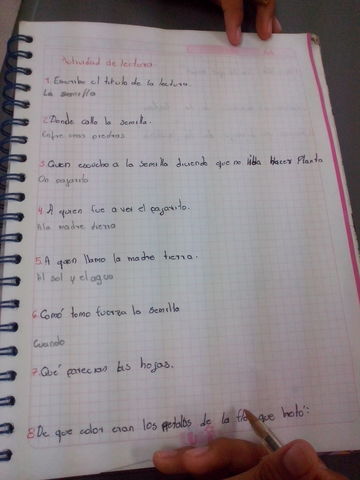 Actividad de lectura
1. Escribe el titulo de la lectura.
La semilla
2. Donde callo la semilla.
Entre unas piedras
3. Quien escucho a la semilla diciendo que no iba Hacer Planta
Un pajarito
4. A quien fue a ver el pajarito.
A la madre tierra
5. A quien llamo la madre tierra.
Al sol y el agua
6. Comó tomo fuerza la semilla
Cuando
7. Qué parecian las hojas.
8. De que color eran los petalos de la flor que brotó: